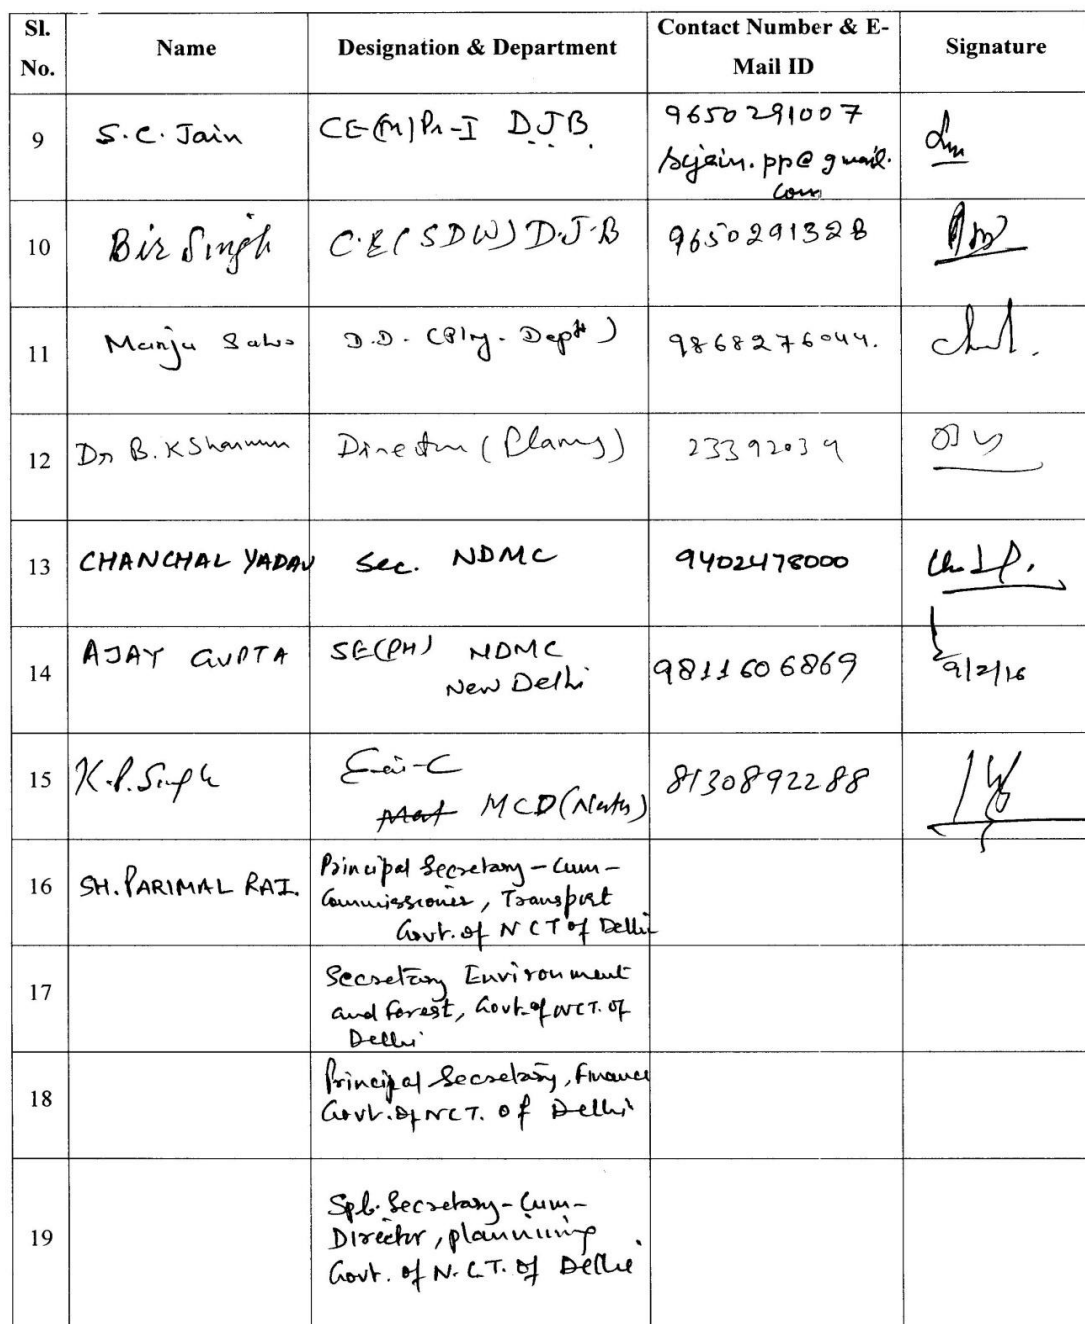 Sl. No. Name Designation & Department Contact Number & E-Mail ID Signature
9 S.C. Jain CE(M)Pr-I D.J.B. 9650291007
scjain.pp@gmail.
com
10 Bir Singh C.E(SDW) D.J.B 9650291328
11 Manju D.D. (Plg. Deptt) 9868276044.
12 Dr B. K Sharma Director (Planng) 23392039
13 CHANCHAL YADAV Sec. NDMC 9402478000
14 AJAY GUPTA SE(PH) NDMC
New Delhi 9811606869 9/2/16
15 K.P. Singh E-in-C
MCD (North) 8130892288
16 SH. PARIMAL RAI. Principal Secretary-Cum-
Commissioner, Transport
Govt. of NCT of Delhi
17 Secretary Environment
and Forest, Govt. of NCT. of
Delhi
18 Principal Secretary, Finance
Govt. of NCT. of Delhi
19 Spl. Secretary-Cum-
Director, plannining
Govt. of N.C.T. of Delhi